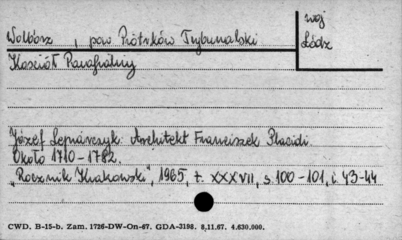 Wolbórz, pow Piotrków Trybunalski
woj Łódz
Kościół Parafialny
Józef Lepiarczyk: Architekt Franciszek Placidi.
Około 1710-1782.
"Rocznik Krakowski", 1965, t. XXXVII, s. 100-101, i. 43-44
CWD. B-15-b. Zam. 1726-DW-On-67. GDA-3198. 8,11.67. 4.630.000.